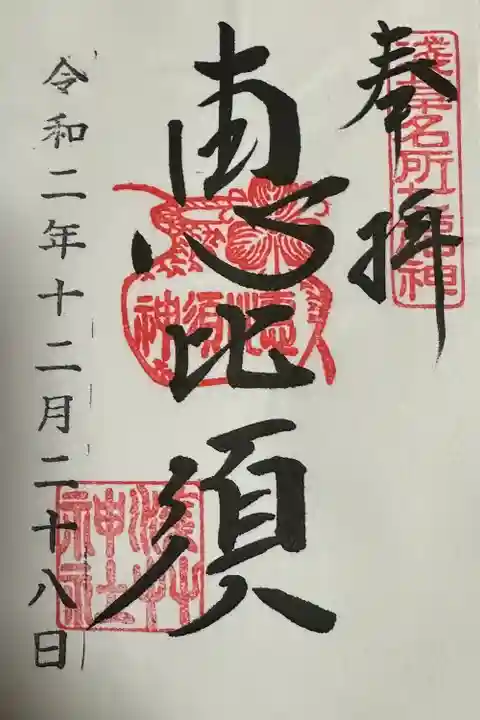 奉拝
浅草名所七福神
恵比須
恵比須神
浅草神社印
令和二年十二月二十八日